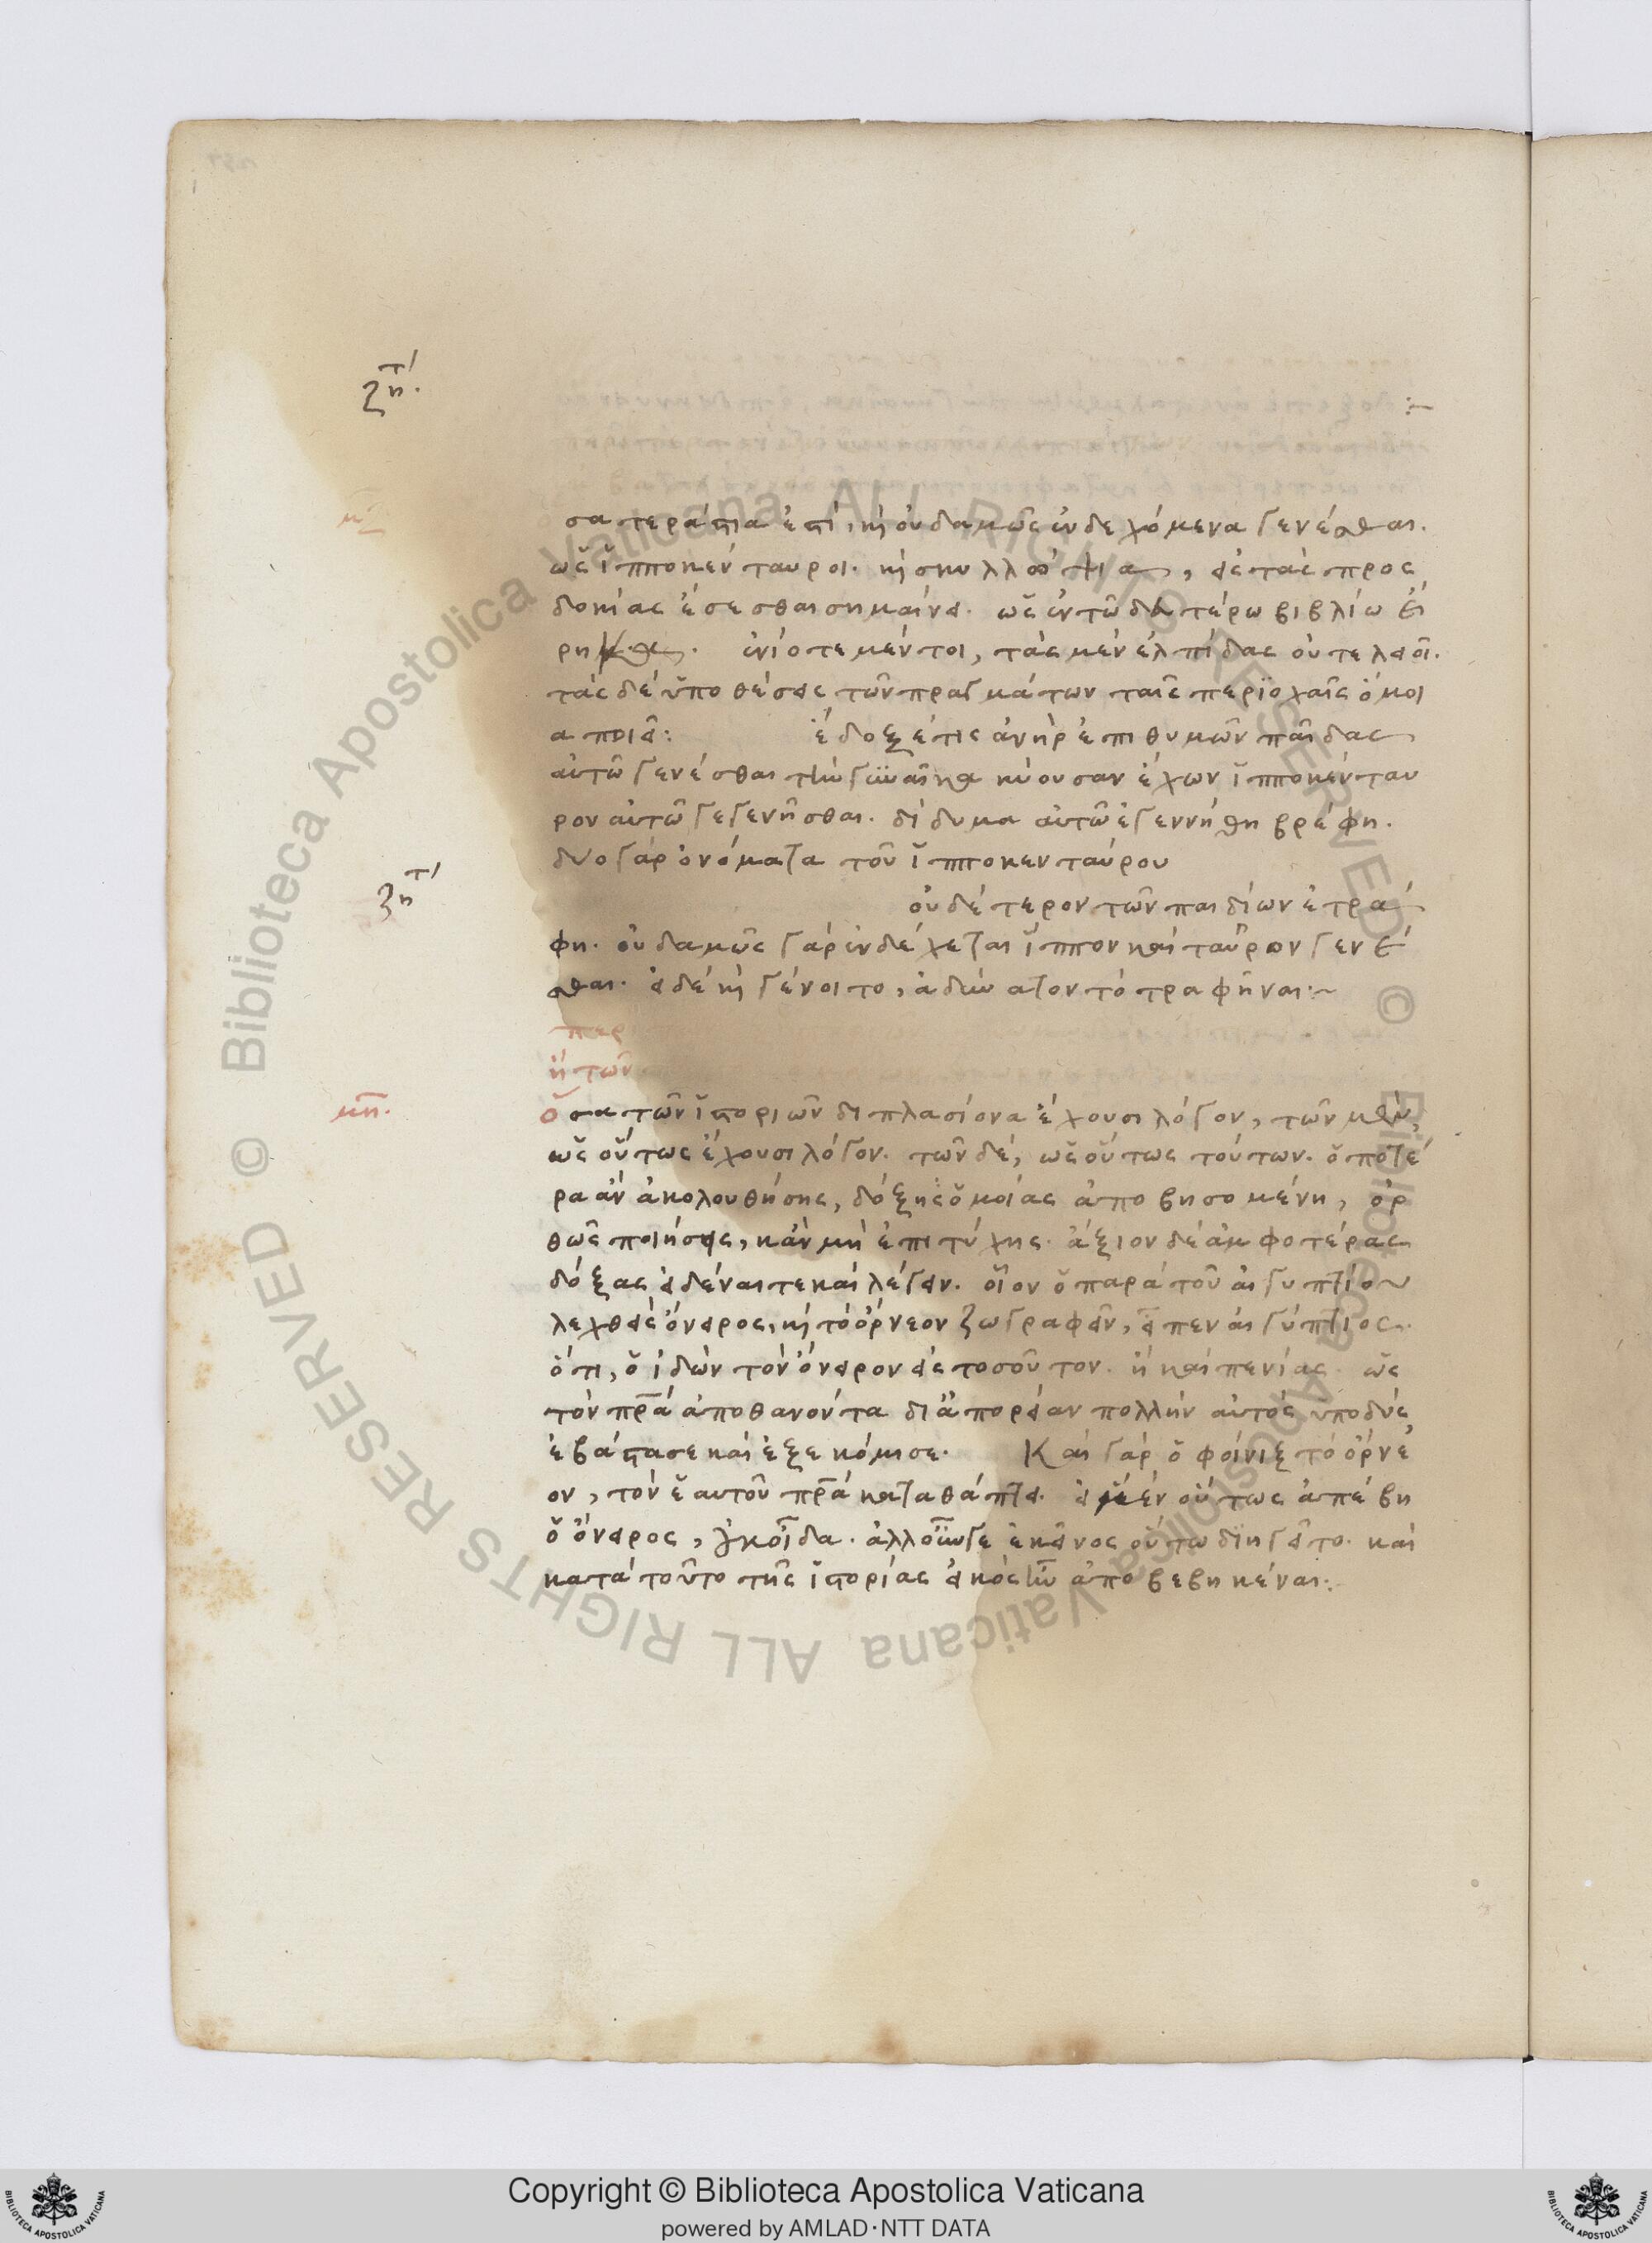 ζητ΄
:~
μζ
σα τεράστια ἐστὶ, καὶ οὐδαμῶς ἐνδεχόμενα γενέσθαι.
ὡς ἱπποκένταυροι. καὶ σκύλλα, εἰς τὰς προς
δοκίας ἔσεσθαι σημαίνει. ὡς ἐν τῶ δευτέρω βιβλίω εἴ
ρηκται. ἐνίοτε μέντοι, τὰς μὲν ἐλπίδας οὐ τελεῖ.
τὰς δὲ ὑποθέσεις τῶν πραγμάτων ταῖς περιοχαῖς ὅμοι
α ποιεῖ: ἔδοξέ τις ἀνὴρ ἐπιθυμῶν παῖδας
αὐτῶ γενέσθαι τὴν γυναῖκα κύουσαν ἔχων ἱπποκένταυ
ρον αὐτῶ γεγενῆσθαι. δίδυμα αὐτῶ ἐγεννήθη βρέφη.
δύο γὰρ ὀνόματα τοῦ ἱπποκενταύρου
ζητ΄
οὐδέτερον τῶν παιδίων ἐτρά
φη. οὐδαμῶς γὰρ ἐνδέχεται ἵππον καὶ ταῦρον γενέ
σθαι. εἰ δὲ καὶ γένοιτο, ἀδύνατον τὸ τραφῆναι:~
περ
ἢ τῶν
μη.
ὅσα τῶν ἱστοριῶν διπλασίονα ἔχουσι λόγον, τῶν μὲν,
ὡς οὕτως ἔχουσι λόγον. τῶν δὲ, ὡς οὕτως τούτων. ὁποτέ
ρα ἂν ἀκολουθήσης, δόξης ὁμοίας ἀποβησομένη, ὀρ
θῶς ποιήσεις, κἂν μὴ ἐπιτύχης. ἄξιον δὲ ἀμφοτέρας
δόξας εἰδέναι τε καὶ λέγειν. οἷον ὁ παρὰ τοῦ αἰγυπτίου
λεχθεὶς ὄνειρος, καὶ τὸ ὄρνεον ζωγραφεῖν, εἶπεν αἰγύπτιος
ὅτι, ὁ ἰδὼν τὸν ὄνειρον εἰς τοσοῦτον. ἧκαι πενίας ὡς
τὸν πρα ἀποθανόντα δι ἀπορείαν πολλὴν αὐτὸς ὑποδὺς
ἐβάστασε καὶ ἐξεκόμισε. Καὶ γὰρ ὁ φοίνιξ τὸ ὄρνε
ον, τὸν ἑαυτοῦ πρα καταθάπτει. εἰ μὲν οὕτως ἀπέβη
ὁ ὄνειρος, οὐκ οἶδα. ἀλλ οὖν γε ἐκεῖνος οὕτω διηγεῖτο. καὶ
κατὰ τοῦτο τῆς ἱστορίας εἰκὸς ἦν ἀποβεβηκέναι:.
Copyright © Biblioteca Apostolica Vaticana
powered by AMLAD·NTT DATA
© Biblioteca Apostolica Vaticana ALL RIGHTS RESERVED © Biblioteca Apostolica Vaticana ALL RIGHTS RESERVED